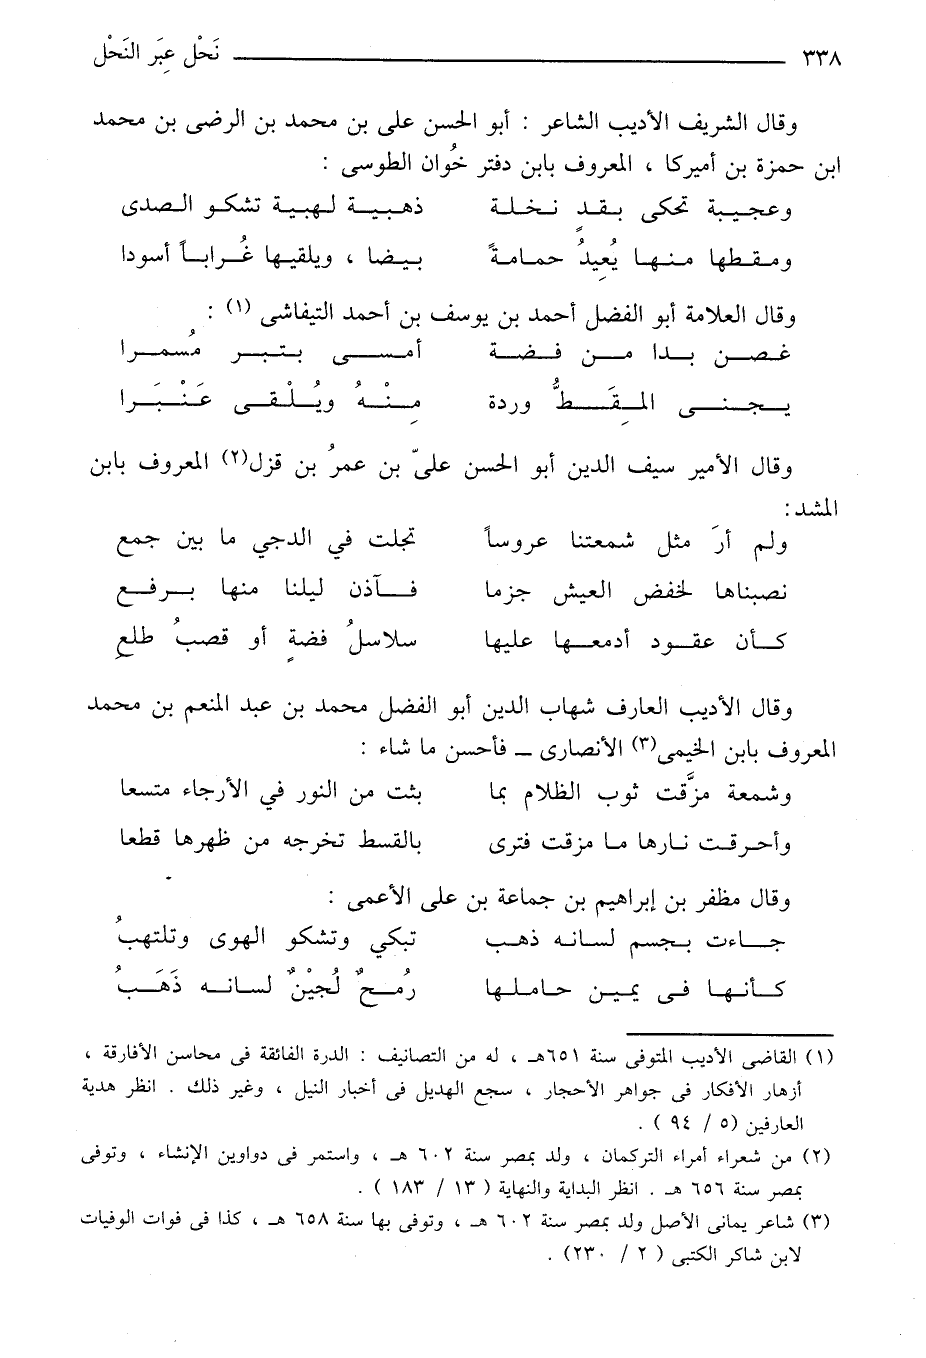 ٣٣٨ نَحْل عِبَر النَحْل
وقال الشريف الأديب الشاعر : أبو الحسن على بن محمد بن الرضى بن محمد
ابن حمزة بن أميركا ، المعروف بابن دفتر خُوان الطوسى :
وعجيبة تحكى بقد نخلة ذهبية لهبية تشكو الصدى
ومقطها منها يُعِيدُ حمامةً بيضا ، ويلقيها غُراباً أسودا
وقال العلامة أبو الفضل أحمد بن يوسف بن أحمد التيفاشى (١) :
غصن بدا من فضة أمسى بتبر مُسمرا
يجنى المقَطُّ وردة مِنْهُ ويُلْقى عَنْبَرا
وقال الأمير سيف الدين أبو الحسن علىّ بن عمرُ بن قزل(٢) المعروف بابن
المشد:
ولم أرَ مثل شمعتنا عروساً تجلت في الدجي ما بين جمع
نصبناها لخفض العيش جزما فآذن ليلنا منها برفع
كأن عقود أدمعها عليها سلاسلُ فضةٍ أو قصبُ طلعِ
وقال الأديب العارف شهاب الدين أبو الفضل محمد بن عبد المنعم بن محمد
المعروف بابن الخيمى(٣) الأنصارى – فأحسن ما شاء :
وشمعة مزَّقت ثوب الظلام بما بثت من النور في الأرجاء متسعا
وأحرقت نارها ما مزقت فترى بالقسط تخرجه من ظهرها قطعا
وقال مظفر بن إبراهيم بن جماعة بن على الأعمى :
جاءت بجسم لسانه ذهب تبكي وتشكو الهوى وتلتهبُ
كأنها فى يمين حاملها رُمحٌ لُجَيْنٌ لسانه ذَهَبُ
(١) القاضى الأديب المتوفى سنة ٦٥١هـ ، له من التصانيف : الدرة الفائقة فى محاسن الأفارقة ،
أزهار الأفكار فى جواهر الأحجار ، سجع الهديل فى أخبار النيل ، وغير ذلك . انظر هدية
العارفين (٥ / ٩٤ ) .
(٢) من شعراء أمراء التركمان ، ولد بمصر سنة ٦٠٢ هـ ، واستمر فى دواوين الإنشاء ، وتوفى
بمصر سنة ٦٥٦ هـ . انظر البداية والنهاية ( ١٣ / ١٨٣ ) .
(٣) شاعر يمانى الأصل ولد بمصر سنة ٦٠٢ هـ ، وتوفى بها سنة ٦٥٨ هـ ، كذا فى فوات الوفيات
لابن شاكر الكتبى ( ٢ / ٢٣٠) .